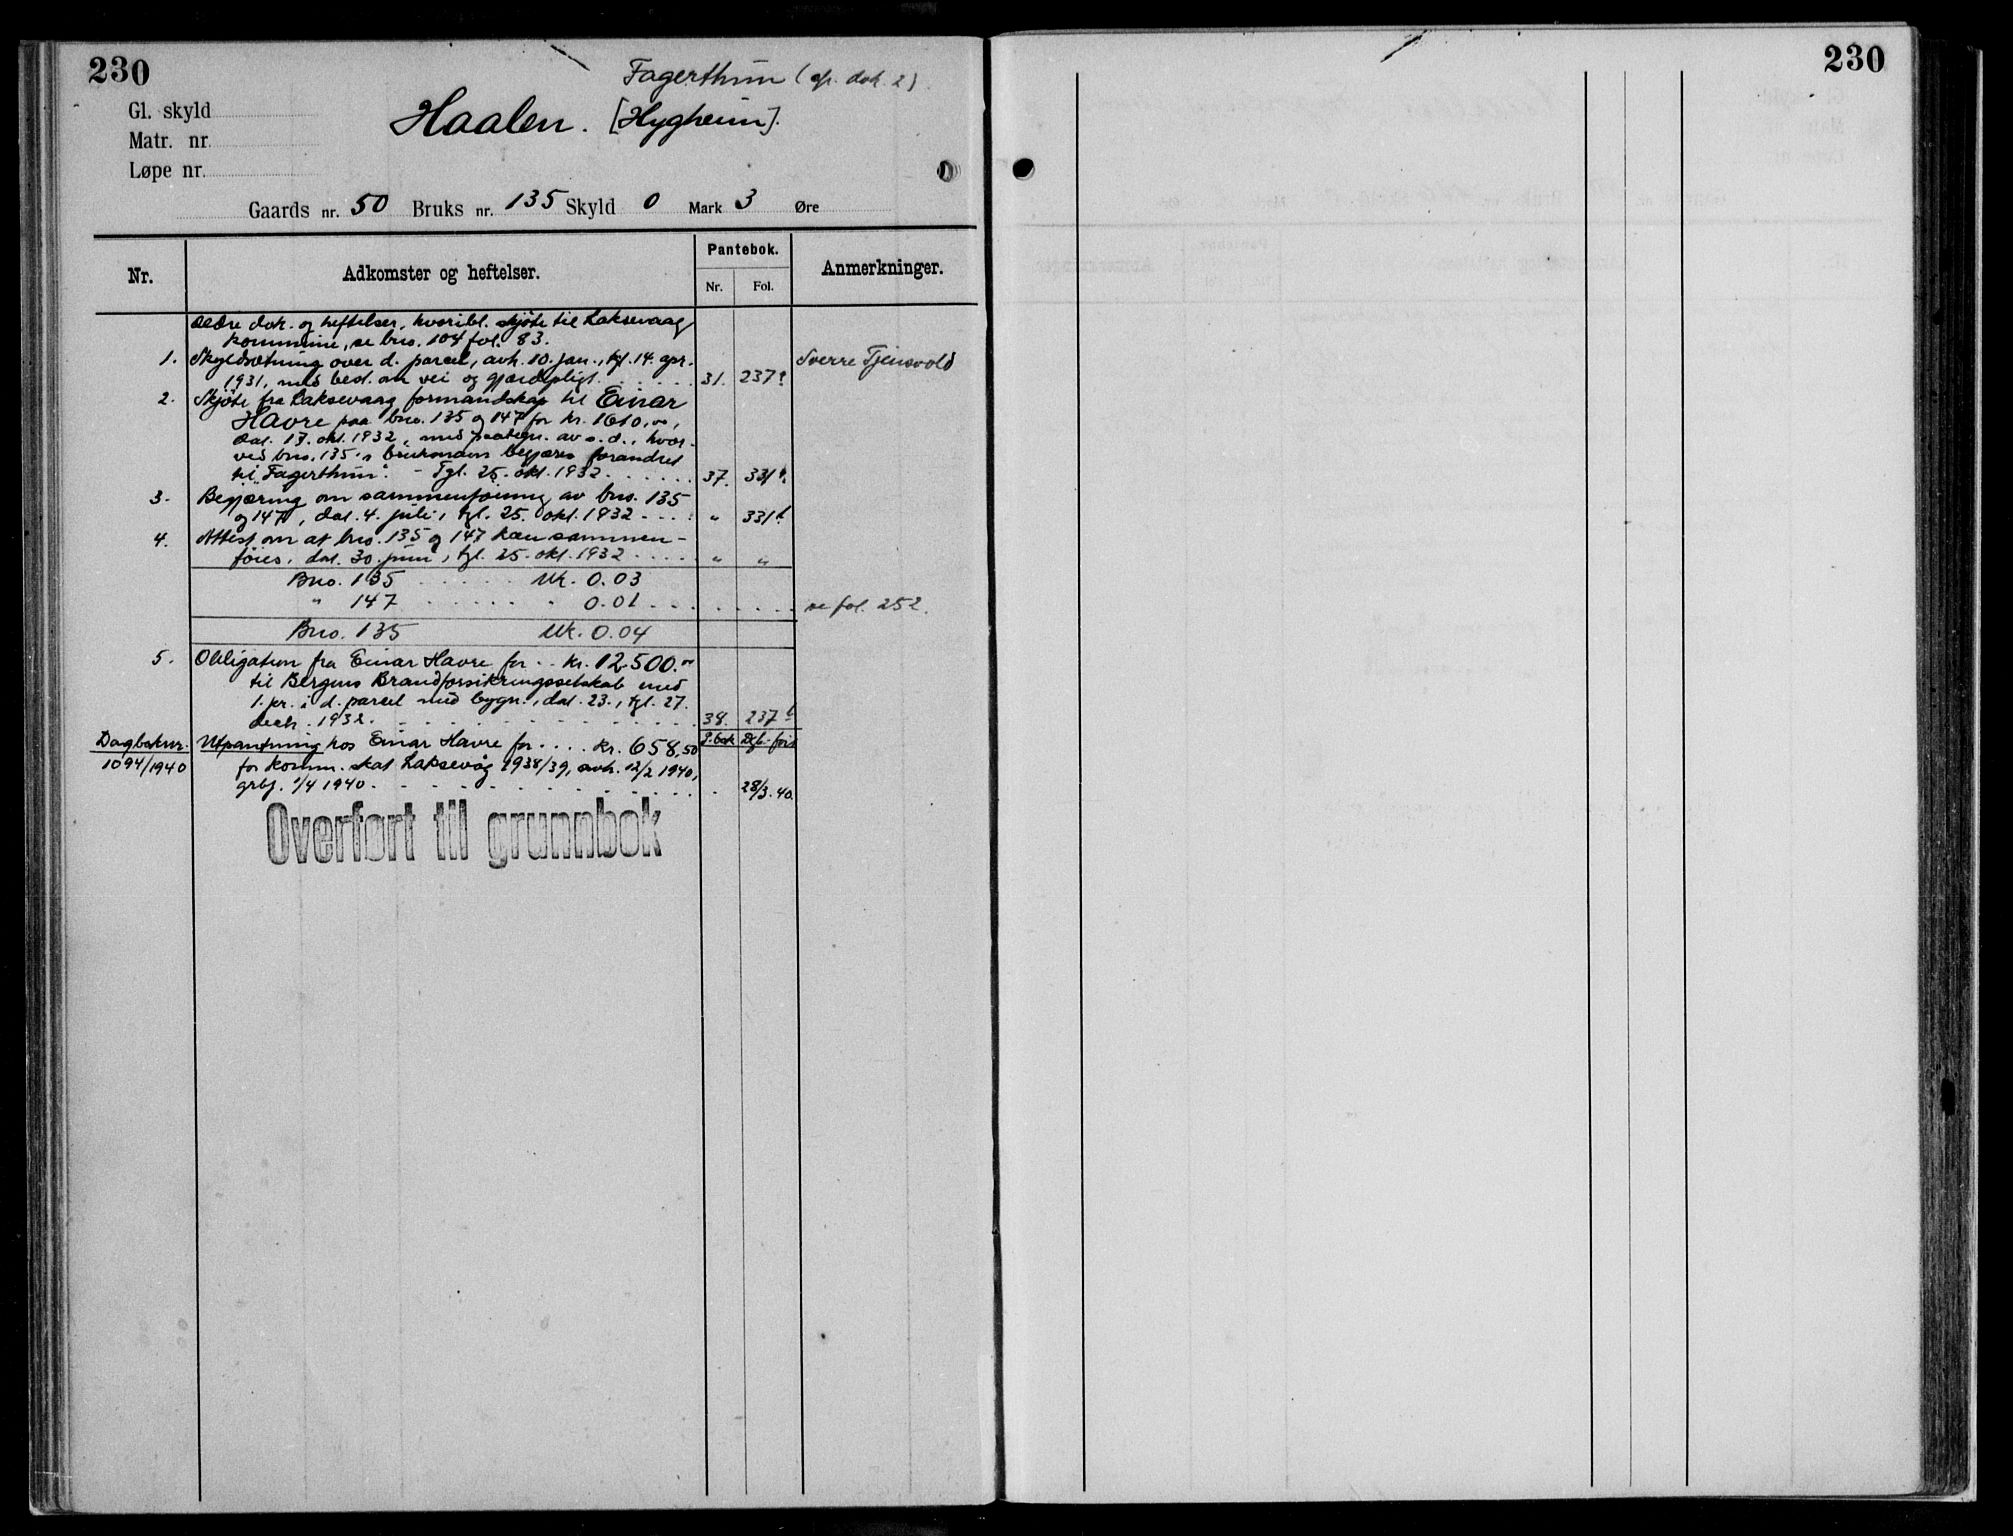 230
Fagerthun (cfr. dok. 2)
Gl. skyld
Haalen. [Hygheim].
Matr. nr.
Løpe nr.
Gaards nr. 50 Bruks nr. 135 Skyld 0 Mark 3 Øre
Nr. Adkomster og heftelser. Pantebok. Anmerkninger.
Nr. Fol.
Ældre dok. og heftelser, hvoribl. skjøte til Laksevaag
kommune, se bno. 104 fol. 83.
1. Skyldsætning over d. parcel, avh. 10. jan., tgl. 14. apr. Sverre Tjensvold
1931, med best. om vei og gjærdepligt. 31. 237a
2. Skjøte fra Laksevaag formandskap til Einar
Havre paa bno. 135 og 147 for kr. 1610,00,
dat. 13. okt. 1932, med paategn. av s. d., hvor-
ved bno. 135's bruksnavn begjæres forandret
til "Fagerthun". - Tgl. 25. okt. 1932. 37. 331
3. Begjæring om sammenføining av bno. 135
og 147, dat. 4. juli, tgl. 25. okt. 1932 " 331b
4. Attest om at bno. 135 og 147 kan sammen-
føies, dat. 30. juni, tgl. 25. okt. 1932 " "
Bno. 135 Mk. 0.03
" 147 " 0.01 se fol. 252.
Bno. 135 Mk. 0.04
5. Obligation fra Einar Havre for kr. 12.500.00
til Bergens Brandforsikringsselskab med
1. pr. i d. parcel med bygn., dat. 23., tgl. 27.
decb. 1932. 38. 237b
Dagboknr. Utpantning hos Einar Havre for kr. 658,50 P.bok Dgb.-ført
1094/1940 for komm. skat Laksevåg 1938/39, avh. 12/2 1940,
grbf. 1/4 1940. 28/3.40.
Overført til grunnbok
230